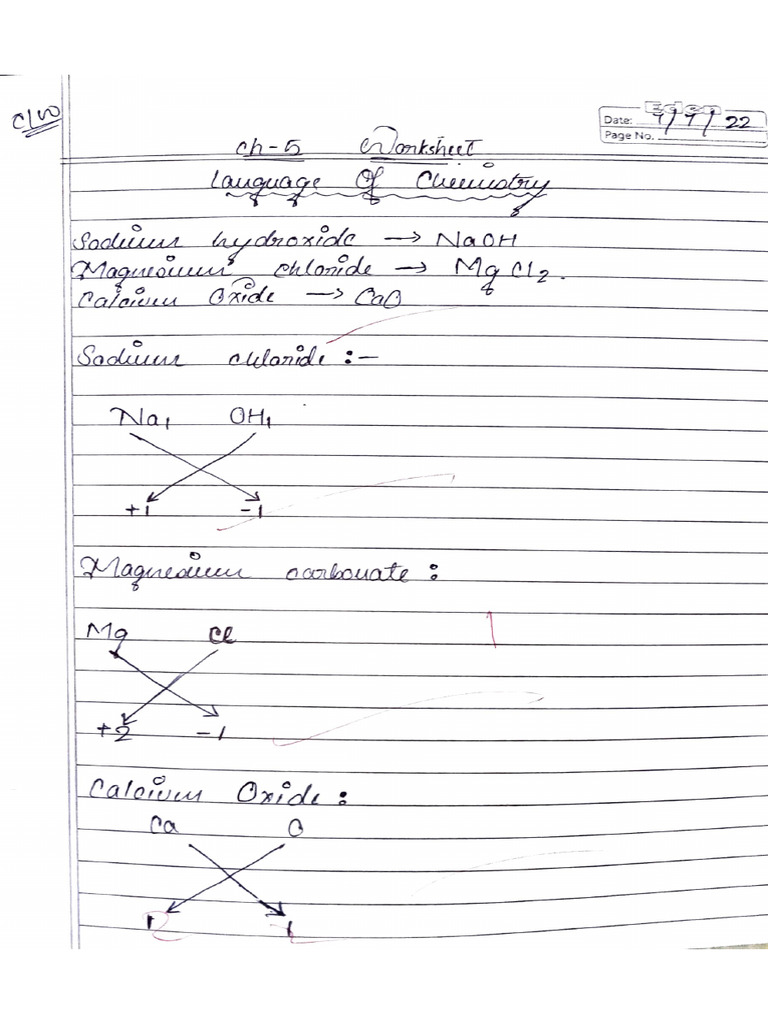 C/W
Eden
Date: 7/7/22
Page No.
Ch-5 Worksheet
Language Of Chemistry
Sodium hydroxide → NaOH
Magnesium chloride → MgCl2.
Calcium Oxide → CaO
Sodium chloride :-
Na1 OH1
+1 -1
Magnesium carbonate :
Mg Cl
+2 -1
Calcium Oxide :
Ca O
1 -1